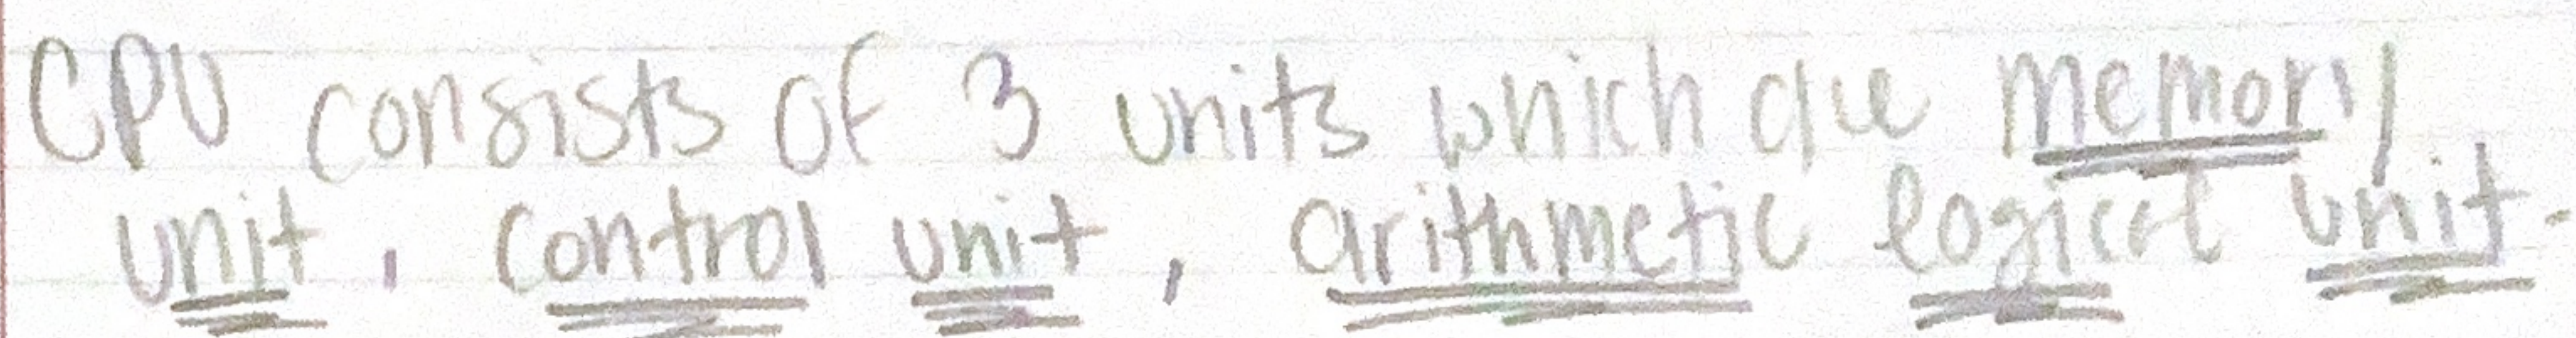 CPU consists of 3 units which are memory
unit, control unit, arithmetic logical unit.